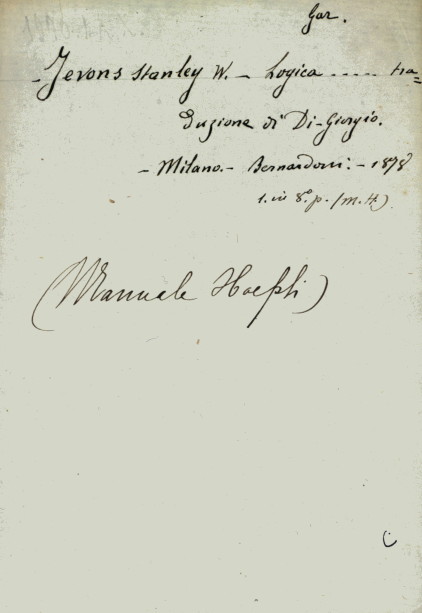 Gar.
- Jevons Stanley W. - Logica ..... tra=
duzione di Di-Giorgio.
- Milano. - Bernardoni. - 1878
1. in 8.° p. (M. H)
(Manuale Hoepli)